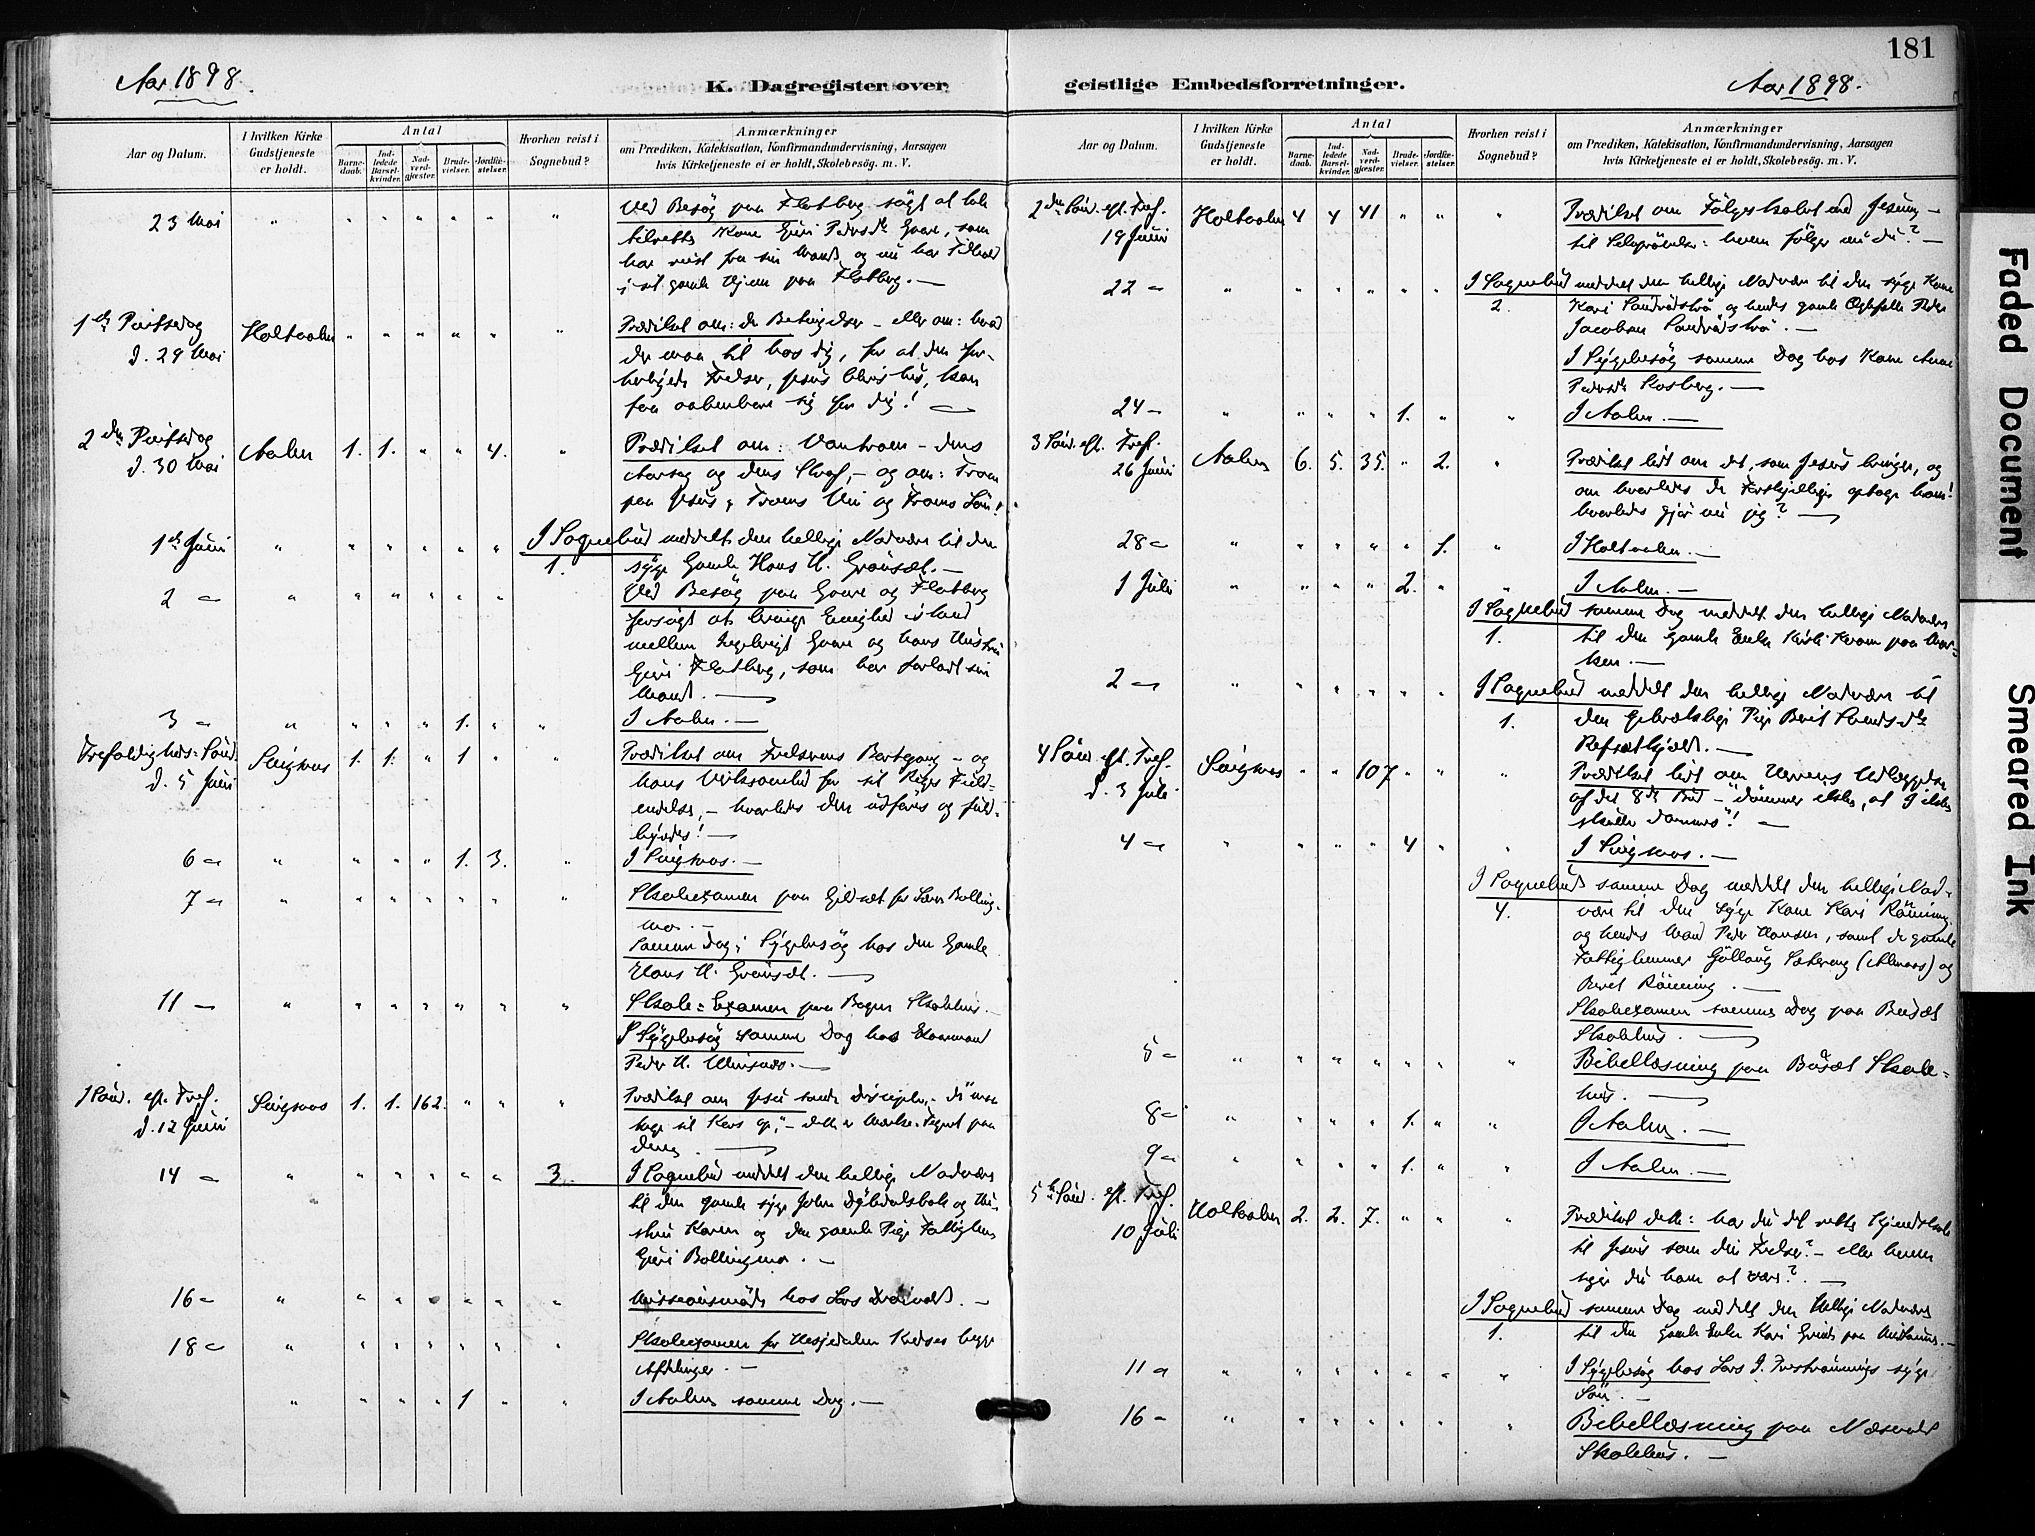 181
Aar 1898.
K. Dagregister over
geistlige Embedsforretninger.
Aar 1898.
Aar og Datum.
I hvilken Kirke Gudstjeneste er holdt.
Antal
Barne-daab.
Ind-ledede Barsel-kvinder.
Nad-verd-gjæster.
Brude-vielser.
Jordfæ-stelser.
Hvorhen reist i Sognebud?
Anmærkninger
om Prædiken, Katekisation, Konfirmandundervisning, Aarsagen
hvis Kirketjeneste ei er holdt, Skolebesøg. m. V.
23 Mai " " " " " " " Ved Besøg paa Flatberg søgt at tale
tilrette Kone Guri Pedersdtr Gaare, som
har reist fra sin Mand og nu har Tilhold
i sit gamle Hjem paa Flatberg. —
1ste Pintsedag
d. 29 Mai Holtaalen " " " " " " Prædiket om: de Betingelser – eller om: hvad
der maa til hos dig, for at den for-
herligede Frelser, Jesus Christus, kan
faa aabenbare sig for dig! —
2den Pintsedag
d. 30 Mai Aalen 1. 1. " " 4. Prædiket om: Vantroen – dens
Aarsag og dens Straf, – og om: Troen
paa Jesus, Troens Vei og Troens Løn!
1ste Juni " " " " " " I Sognebud meddelt den hellige Nadvere til den
1. syge Gamle Hans H. Grønsæt. —
2 – " " " " " " Ved Besøg paa Gaare og Flatberg
forsøgt at bringe Enighed istand
mellem Ingebrigt Gaare og hans Hustru
Guri Flatberg, som har forladt sin
Mand. —
3 – " " " " 1. " " I Aalen. —
Trefoldigheds-Sønd.
d. 5 Juni Singsaas 1. 1. " 1 " " Prædiket om Frelserens Bortgang – og
hans Virksomhed for sit Riges Fuld-
endelse, – hvorledes den udføres og fuld-
byrdes! —
6 – " " " " 1. 3. " I Singsaas. —
7 – " " " " " " " Skoleexamen paa Gildset for Søren Bolling-
mo. —
Samme Dag i Sygebesøg hos den Gamle
Hans H. Grønsæt. —
11 – " " " " " " " Skole-Examen paa Bogen Skolehus. —
I Sygebesøg samme Dag hos
Peder H.
1 Sønd. eft. Tref.
d. 12 Juni Singsaas 1. 1. 162. " " " Prædiket om Jesu sande Disciple,
tage sit Kors op," – dette er Mærke-Tegnet paa
denne. —
14 – " " " " " " 3. I Sognebud meddelt den hellige Nadvere
til den gamle syge John og Hu-
stru Karen og den gamle Pige Fattiglem
Guri Bollingmo. —
16 – " " " " " " " Missionsmøde hos Lars —
18 – " " " " " " " Skoleexamen for Hesjedalen Kreds begge
Afdelinger. —
" " " " 1 " " I Aalen samme Dag. —
Aar og Datum.
I hvilken Kirke Gudstjeneste er holdt.
Antal
Barne-daab.
Ind-ledede Barsel-kvinder.
Nad-verd-gjæster.
Brude-vielser.
Jordfæ-stelser.
Hvorhen reist i Sognebud?
Anmærkninger
om Prædiken, Katekisation, Konfirmandundervisning, Aarsagen
hvis Kirketjeneste ei er holdt, Skolebesøg. m. V.
2den Sønd. eft. Tref.
19 Juni Holtaalen 4 4 41 " " " Prædiket om Følgeskabet med Jesus, –
til Selvprøvelse: hvem følger nu du? —
22 – " " " " " " I Sognebud meddelt den hellige Nadvere til den syge Kone
2. Kari og hendes gamle Ægtefælle Peder
Jacobsen —
I Sygebesøg samme Dag hos Kone Anne
Pedersdtr Kosberg. —
24 – " " " " 1. " " I Aalen. —
3 Sønd. eft. Tref.
26 Juni Aalen 6. 5. 35. " 2. " Prædiket lidt om det, som Jesus bringer, og
om hvorledes de Forskjellige optage ham!
hvorledes gjør nu jeg? —
28 – " " " " " 1. " I Holtaalen. —
1 Juli " " " " 2. " I Aalen. —
I Sognebud samme Dag meddelt den hellige Nadvere
1. til den gamle Enke Kirsti Kvam paa Mar-
ken. —
2 – " " " " " " I Sognebud meddelt den hellige Nadvere til
1. den gebrækelige Pige Berit Svendsdtr
Refsethjelt. —
4 Sønd. eft. Tref.
d. 3 Juli Singsaas " " 107 " " " Prædiket lidt om Herrens Udlæggelse
af det 8de Bud – "dømmer ikke, at I ikke
skulle dømmes"! —
4 – " " " " 4 " " I Singsaas. —
I Sognebud samme Dag meddelt den hellige Nad-
4. vere til den syge Kone Kari Rønning
og hendes Mand Peder Hansen, samt de gamle
Fattiglemmer Gollaug og
Berit Rønning. —
Skoleexamen samme Dag paa Budal
Skolehus. —
5 – " " " " " " " Bibellæsning paa Budal Skole-
hus. —
8 – " " " " 1. " " I Aalen. —
9 – " " " " 1. " " I Aalen. —
5te Sønd. eft. Tref.
10 Juli Holtaalen 2. 2. 7. " " " Prædiket dette: har du det rette Kjendskab
til Jesus som din Frelser? – eller hvem
siger du ham at være? —
I Sognebud samme Dag meddelt den Hellige Nadvere
1. til den gamle Enke Kari paa —
11 – " " " " " " " I Sygebesøg hos Lars J. syge
Søn. —
16 – " " " " " " " Bibellæsning paa Næsvold
Skolehus. —
Faded Document
Smeared Ink